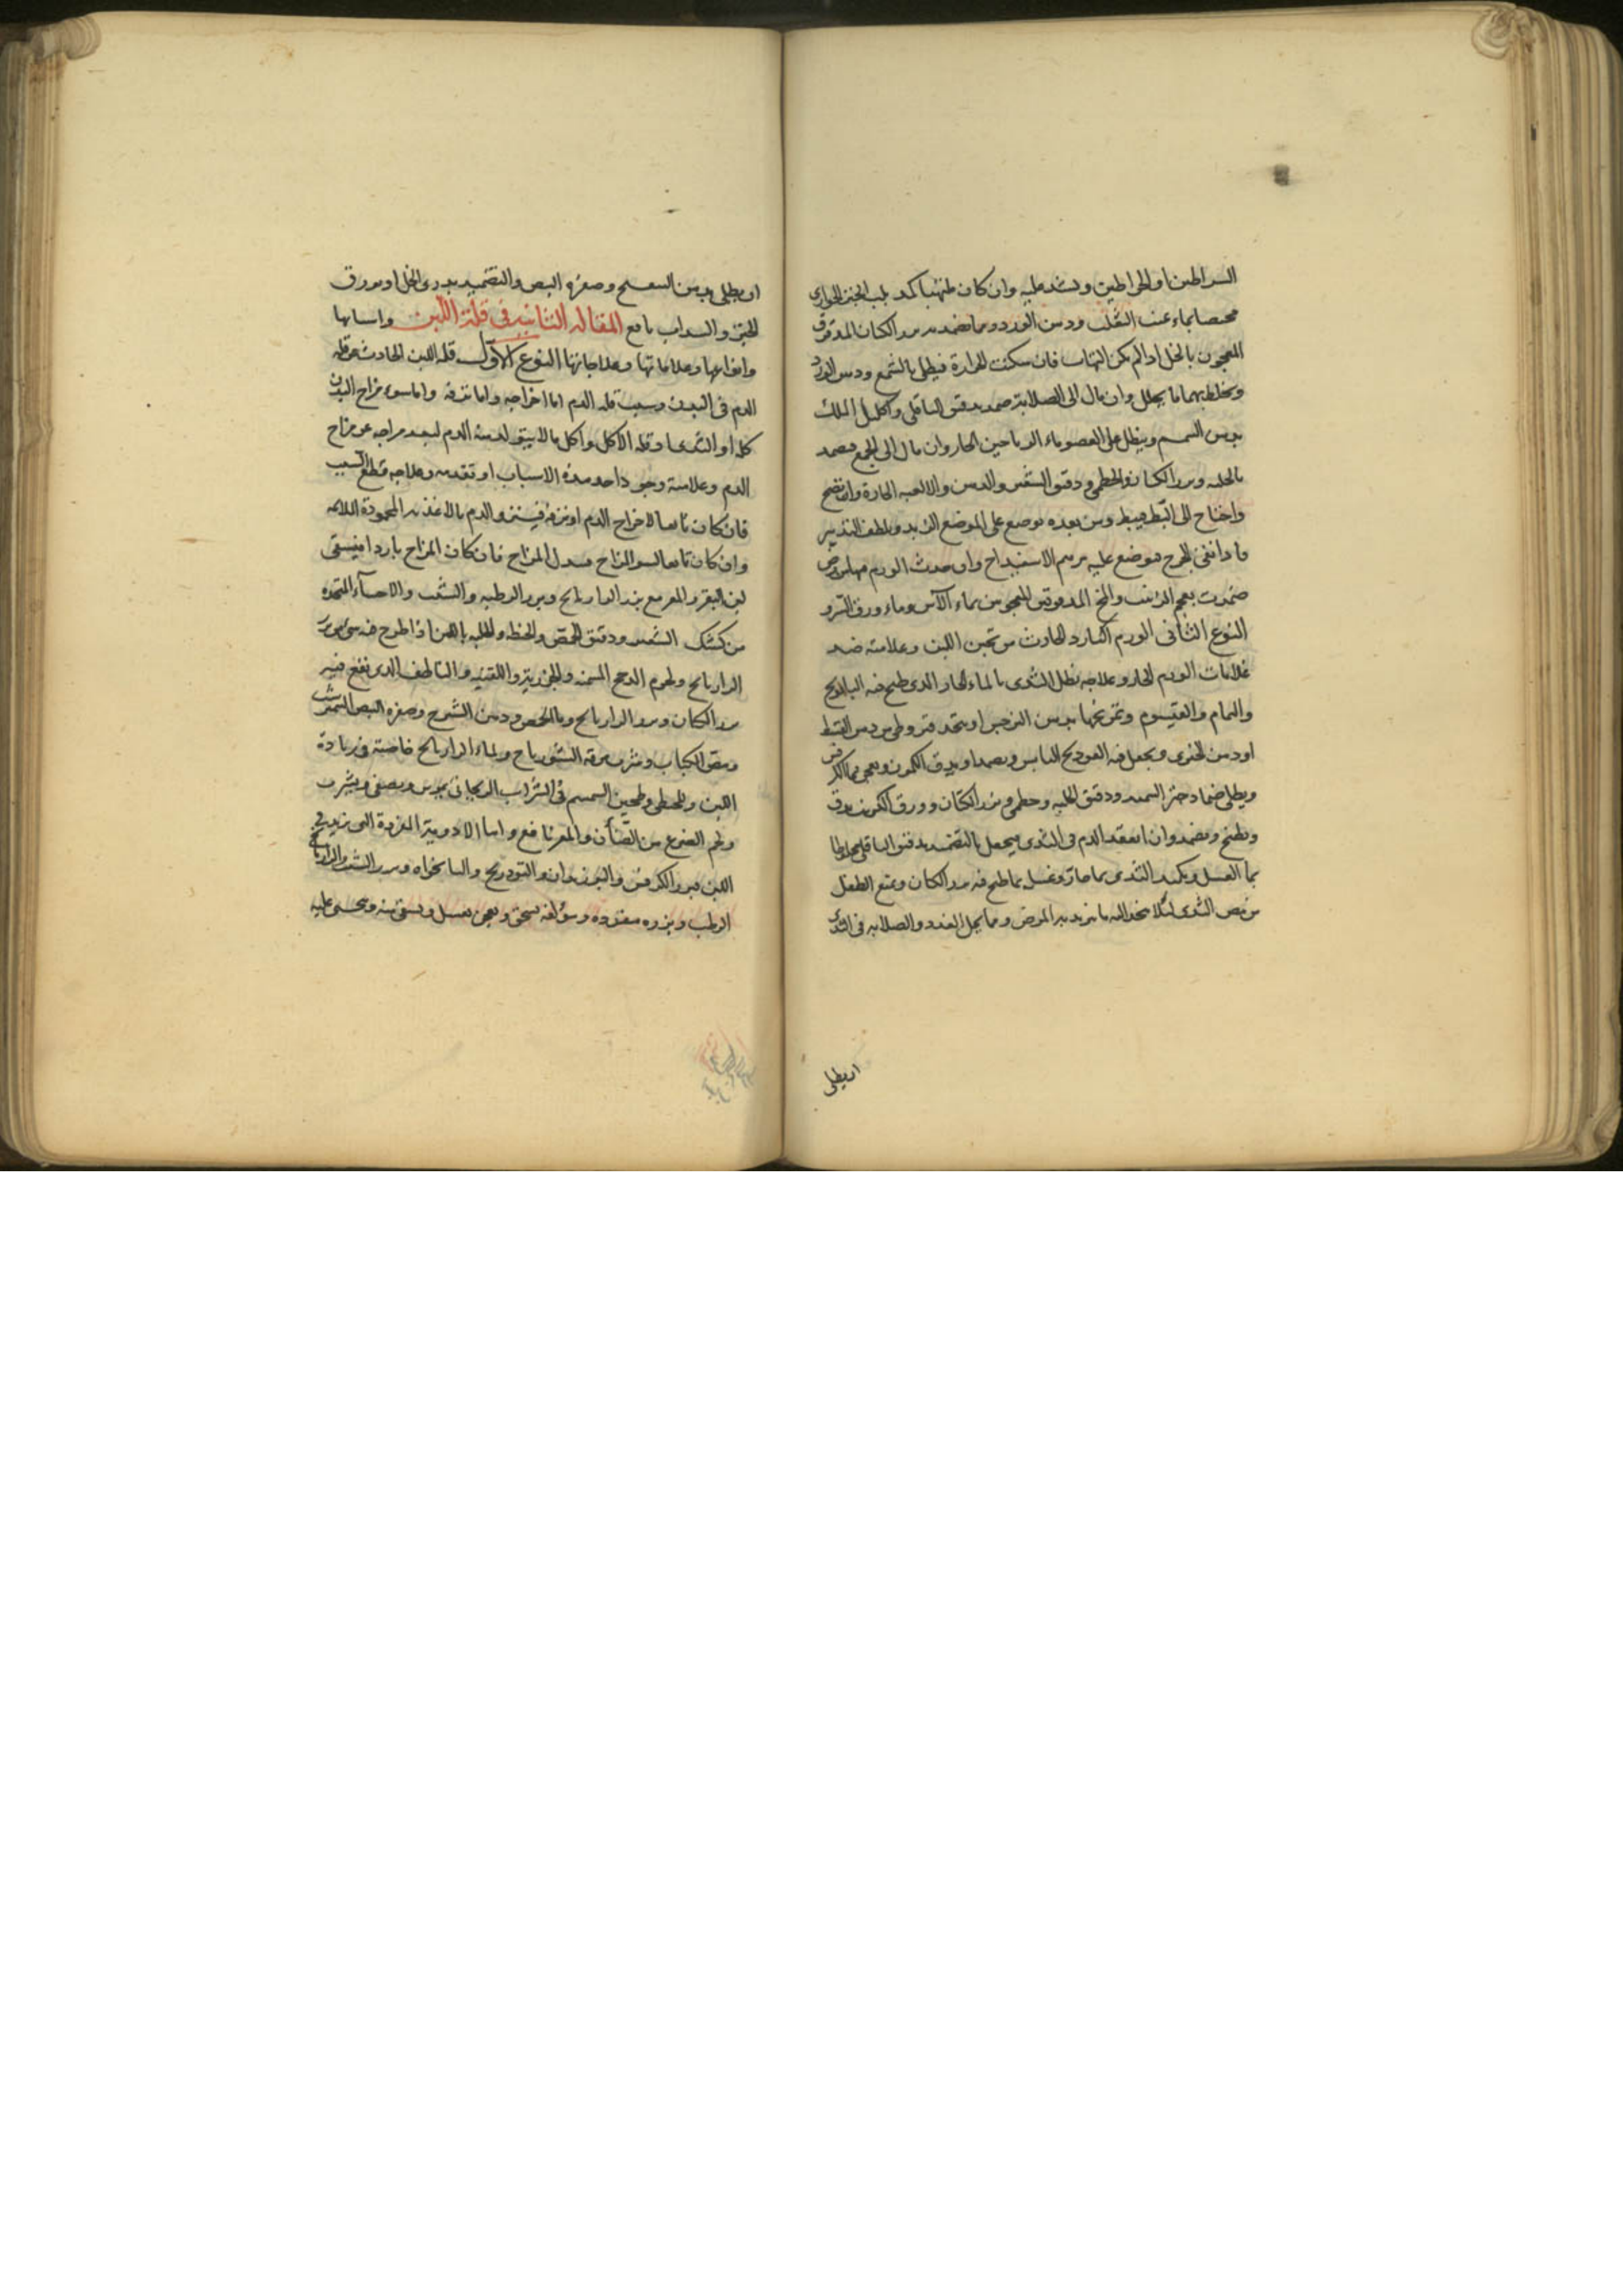 السراطين او الخراطين ويشد عليه وان كان ملتهبا كمد بلب الخبز الحواري
بماء عنب الثعلب ودهن الورد ومما يضمد به بزر الكتان المدقوق
المعجون بالخل اذا لم يكن التهاب فان سكنت الحرارة فيطلى بالشمع ودهن الورد
ويخلط بهما ما يحلل وان مال الى الصلابة ضمد بدقيق الباقلى واكليل الملك
بدهن السمسم وينطل على العضو ماء الرياحين الحار وان مال الى الجمع فيضمد
بالحلبة وبزر الكتان والخطمى ودقيق الشعير والدهن والالعبة الحارة وان نضج
واحتاج الى البط فيبط ومن بعده يوضع على الموضع الزبد ويلطف التدبير
فاذا نقى الجرح فيوضع عليه مرهم الاسفيداج وان حدث الورم
ضمدت بعجم الزبيب المدقوق المعجون بماء الآس وماء ورق السرو
النوع الثانى الورم البارد الحادث من تجبن اللبن وعلامته ضد
علامات الورم الحار وعلاجه نطل الثدى بالماء الحار الذى طبخ فيه البابونج
والنمام والقيسوم وتمريخها بدهن النرجس او يتخذ قيروطى من دهن القسط
او دهن الخيرى ويجعل فيه الفودنج اليابس ويضمد او يدق الكمون ويعجن بماء الكرفس
ويطلى ضماد خبز السميد ودقيق الحلبة وخطمى وبزر الكتان وورق الكرنب يدق
ويطبخ ويضمد وان انعقد الدم فى الثدى فيحلل بالتضميد بدقيق الباقلى مخلوطا
بماء العسل ويكمد الثدى بماء حار ويغسل بماء طبخ فيه بزر الكتان ويمنع الطفل
من مص الثدى لئلا ينجذب اليه ما يزيد به المرض ومما يحلل الغدد والصلابة فى الثدى
ان يطلى
ان يطلى بدهن البنفسج وصفرة البيض والتضميد بدردى الخل او بورق
الخبز والسداب نافع المقالة الثانية فى قلة اللبن واسبابها
وانواعها وعلاماتها وعلاجاتها النوع الاول قلة اللبن الحادث عن قلة
الدم فى البدن وسبب قلة الدم اما اخراجه واما نزفه واما سوء مزاج البدن
كله او الثدى او قلة الاكل واكل ما لا يتولد منه الدم لبعد مزاجه عن مزاج
الدم وعلامته وجود احد هذه الاسباب او تقدمه وعلاجه قطع السبب
فان كان تابعا لاخراج الدم او نزفه فيستزد الدم بالاغذية المحمودة
وان كان تابعا لسوء المزاج فيبدل المزاج فان كان المزاج باردا فيسقى
لبن البقر والمعز مع بزر الرازيانج وبزر الرطبة والشبث والاحساء المتخذة
من كشك الشعير ودقيق الحمص والحنطة والحلبة باللبن اذا طرح فيه شىء من بزر
الرازيانج ولحوم الدجاج المسمنة والجزرية واللفتية والناطف الذى يقع فيه
بزر الكتان وبزر الرازيانج وماء الحمص ودهن الشيرج وصفرة البيض النيمرشت
الكباب وشرب مرقة ولماء الرازيانج خاصية فى زيادة
اللبن والحنطى وطحين السمسم فى الشراب الريحانى يمرس ويصفى ويشرب
ولحم الضرع من الضأن والمعز نافع واما الادوية المفردة التى تزيد فى
اللبن فبزر الكرفس والبوزيدان والتودرنج والنانخواه وبزر الشبث والرازيانج
الرطب وبزره مفردة ومؤلفة يسحق ويعجن بعسل ويسقى منه ويحتسى عليه